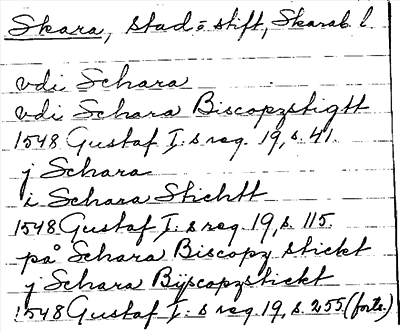 Skara, stad = stift, Skarab. l.
vdi Schara
vdi Schara Biscopzstigtt
1548 Gustaf I:s reg. 19, s. 41.
j Schara
i Schara Stichtt
1548 Gustaf I:s reg. 19, s. 115.
på Schara Biscopz stickt
j Schara Bijscopzstickt
1548 Gustaf I:s reg. 19, s. 255 (forts.)